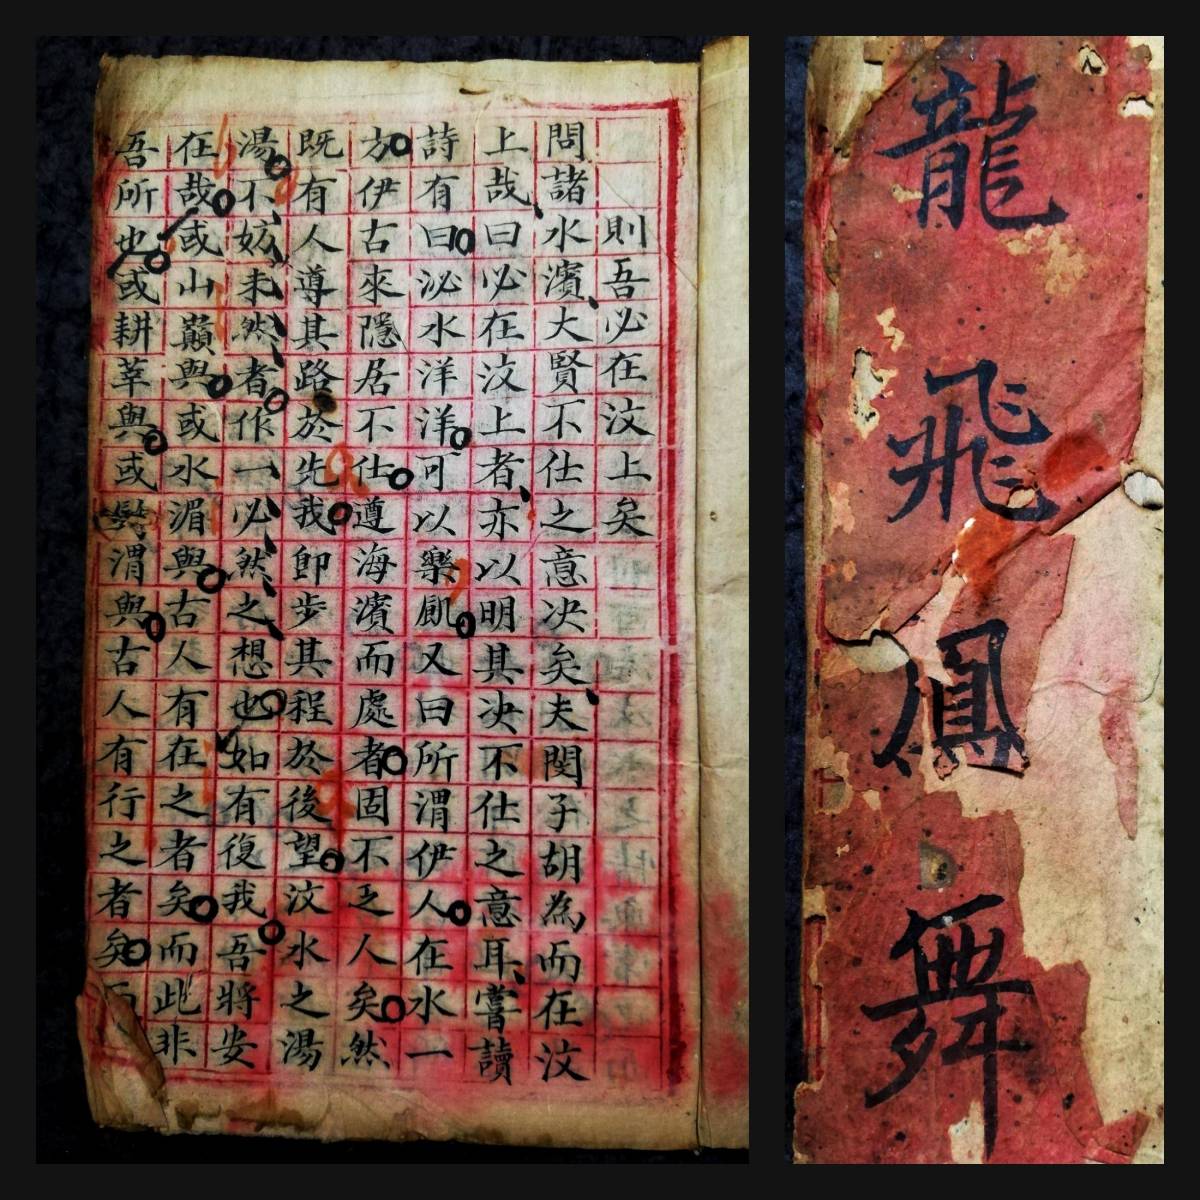 則吾必在汶上矣
問諸水濱大賢不仕之意決矣夫閔子胡為而在汶
上哉曰必在汶上者亦以明其决不仕之意耳嘗讀
詩有曰泌水洋洋可以樂飢又曰所謂伊人在水一
方伊古來隱居不仕遵海濱而處者固不乏人矣然
既有人導其路於先我即步其程於後望汶水之湯
湯不妨未然者作一必然之想也如有復我吾將安
在哉或山巔與或水湄與古人有在之者矣而此非
吾所也或耕莘與或渭與古人有行之者矣
龍飛鳳舞